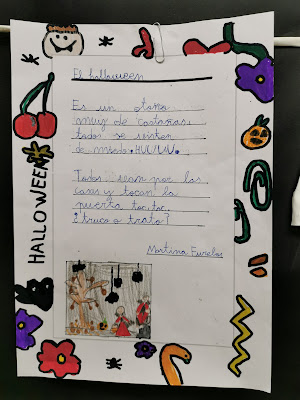 El halloween
Es un otoño
muy de castañas,
todos se visten
de miedo. HUUUU.
Todos van por las
casas y tocan la
puerta toc, toc
¿truco o trato?
Martina
HALLOWEEN